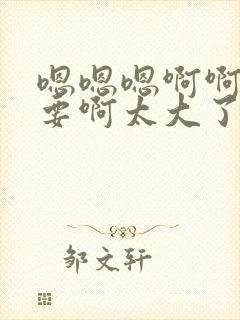 嗯嗯嗯啊啊
要啊太大了
邹文轩